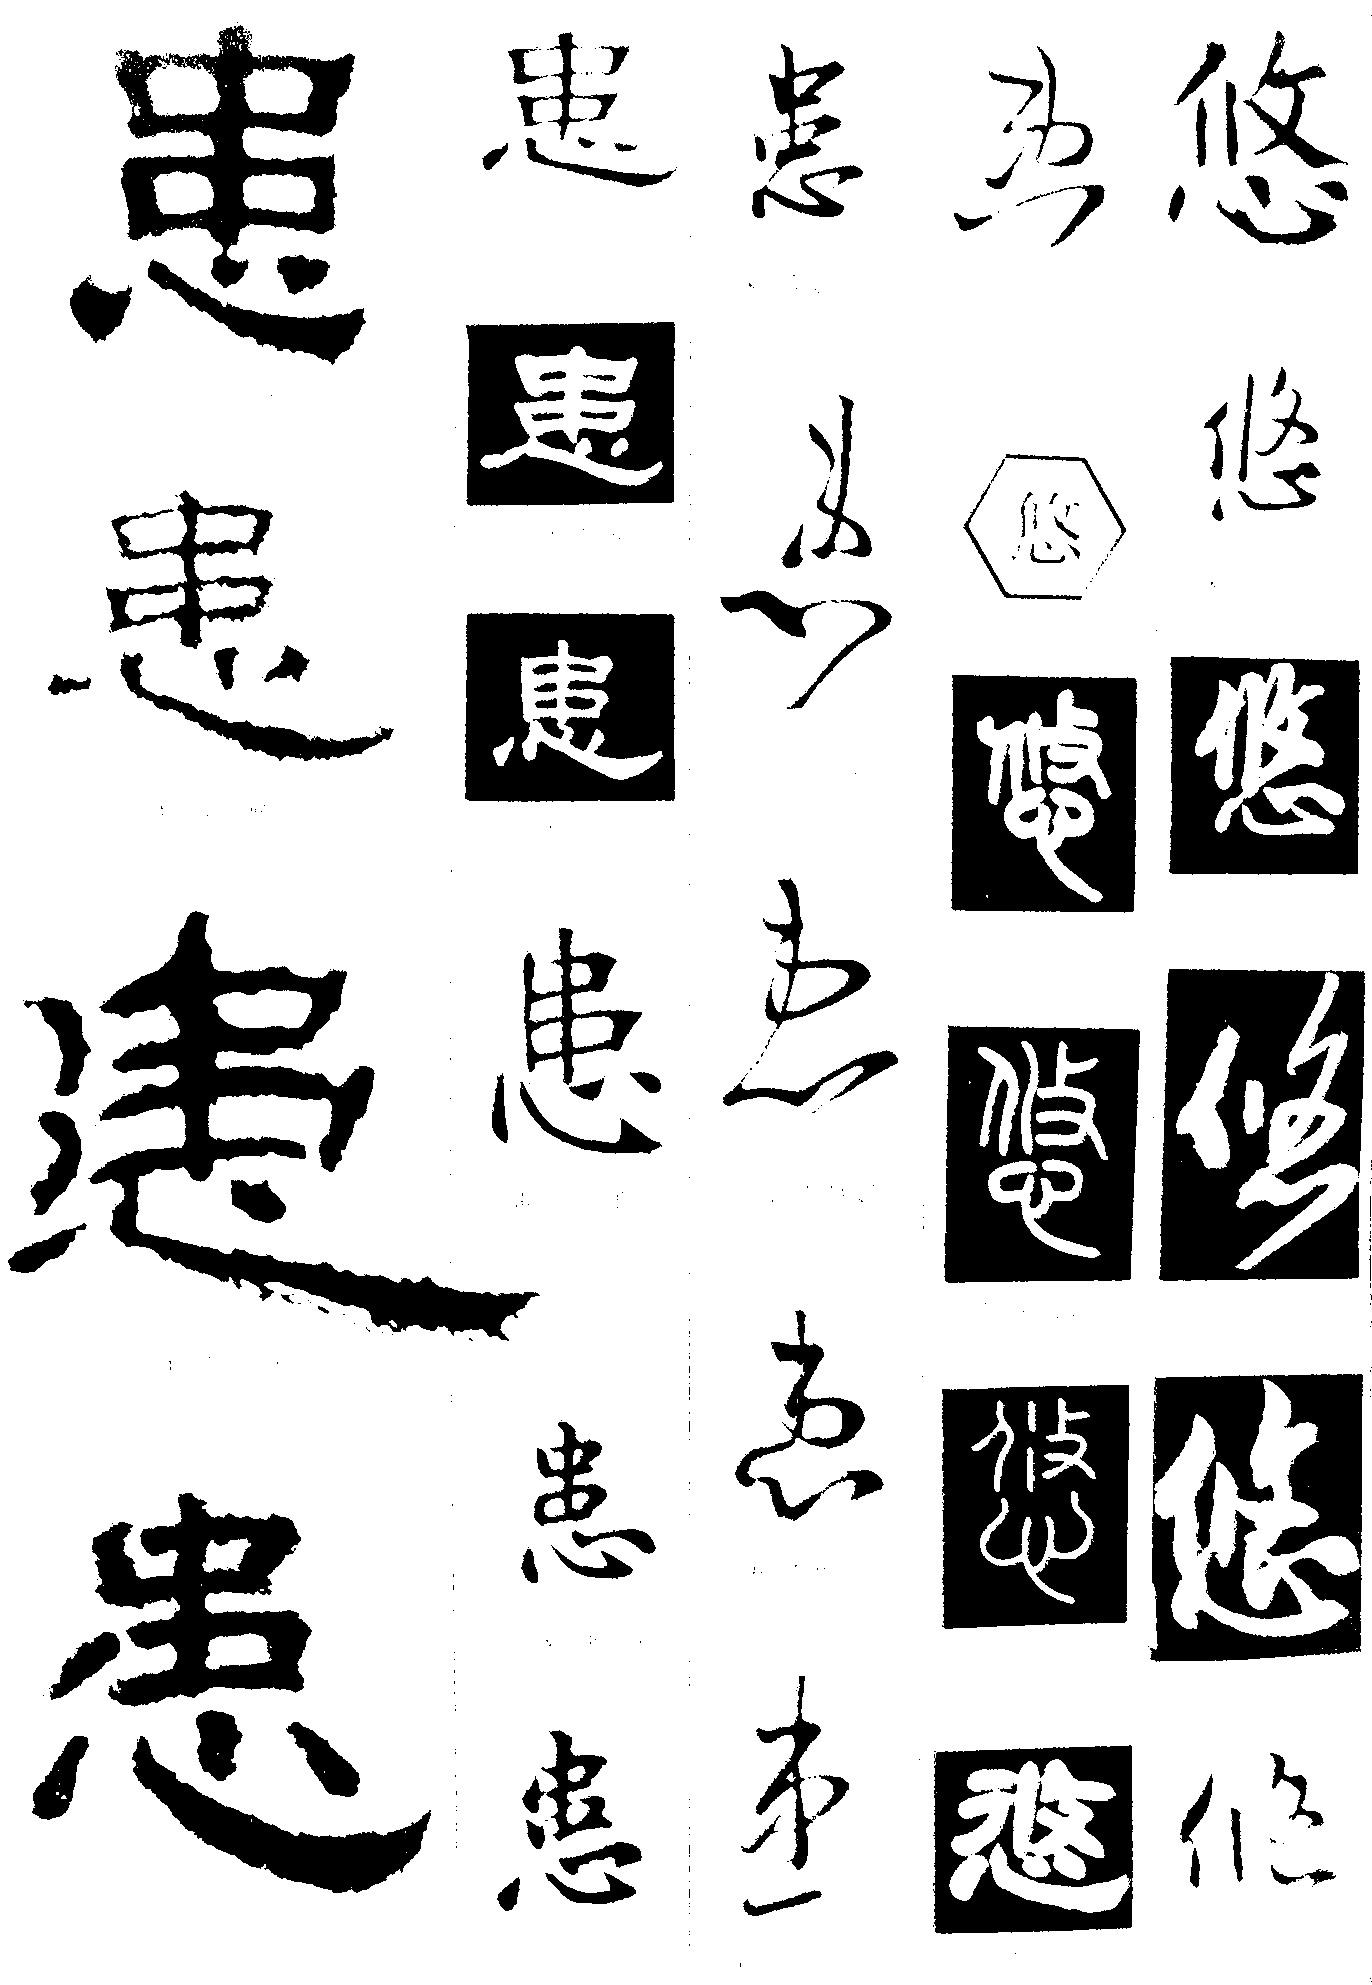 患患患患
患患患患患患
患患患患患
患悠悠悠悠悠
悠悠悠悠悠悠